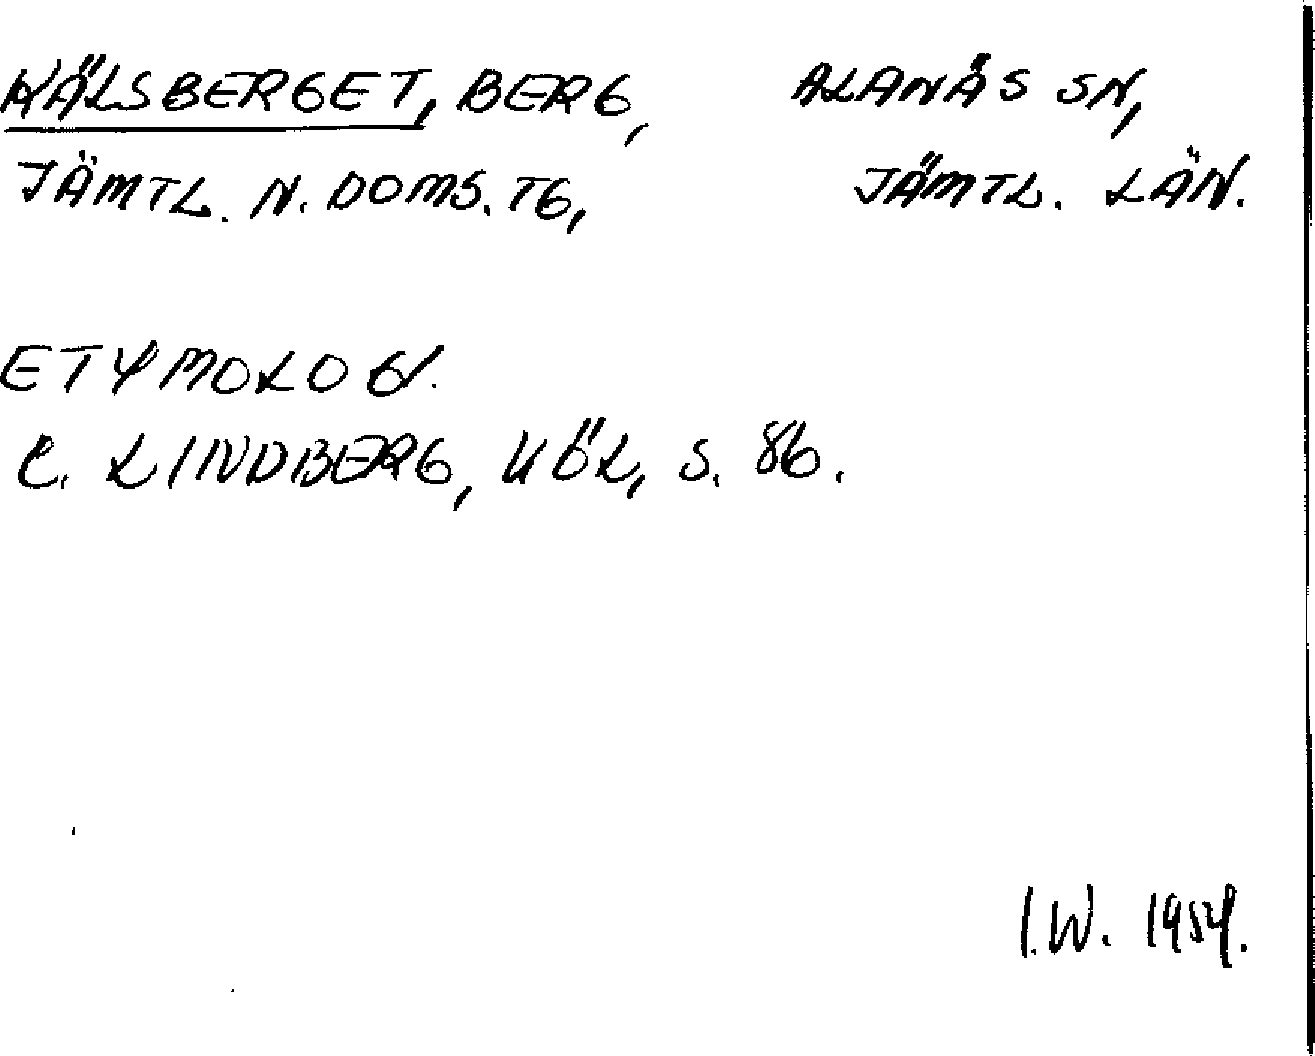 KÄLSBERGET, BERG, ALANÄS SN,
JÄMTL. N. DOMS. TG, JÄMTL. LÄN.
ETYMOLOGI.
C. LINDBERG, KÖL, S. 86.
I.W. 1954.